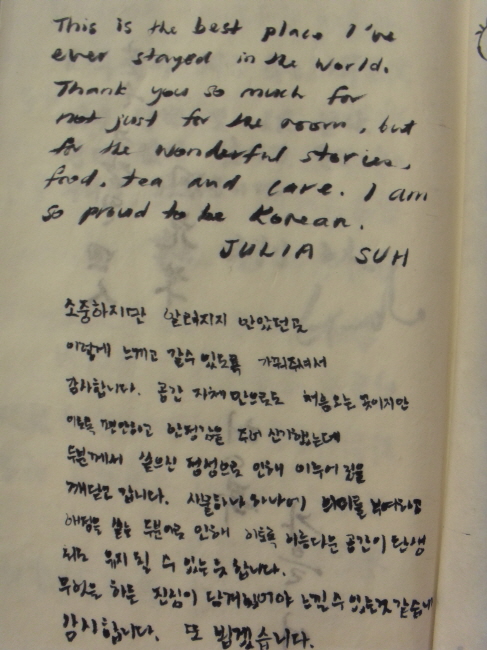 This is the best place I've
ever stayed in the world.
Thank you so much for
not just for the room, but
for the wonderful stories,
food, tea and care. I am
so proud to be Korean.
JULIA SUH
소중하지만 알려지지 않았던 곳
이렇게 느끼고 갈수 있도록 가꿔주셔서
감사합니다. 공간 자체 만으로도 처음오는 곳이지만
이토록 편안하고 안정감을 주어 신기했는데
두분께서 쏟으신 정성으로 인해 이루어 짐을
깨닫고 갑니다. 사물하나 하나에 의미를 부여하고
애정을 쏟는 두분으로 인해 이토록 아름다운 공간이 탄생
되고 유지 될 수 있는 듯 합니다.
무엇을 하든 진심이 담겨있어야 느낄 수 있는것 같습니
감사합니다. 또 뵙겠습니다.